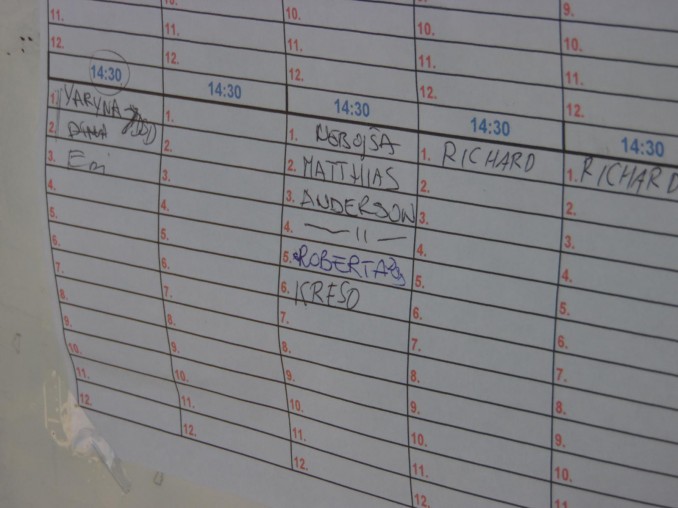 11.
12.
10.
11.
12.
10.
11.
12.
10.
11.
12.
9.
10.
11.
12.
14:30
1. YARYNA
2. DINA
3. Eni
4.
5.
6.
7.
8.
9.
10.
11.
12.
14:30
1.
2.
3.
4.
5.
6.
7.
8.
9.
10.
11.
12.
14:30
1. NEBOJŠA
2. MATTHIAS
3. ANDERSON
4. — 11 —
5. ROBERTA
6. KREŠO
7.
8.
9.
10.
11.
12.
14:30
1. RICHARD
2.
3.
4.
5.
6.
7.
8.
9.
10.
11.
12.
14:30
1. RICHARD
2.
3.
4.
5.
6.
7.
8.
9.
10.
11.